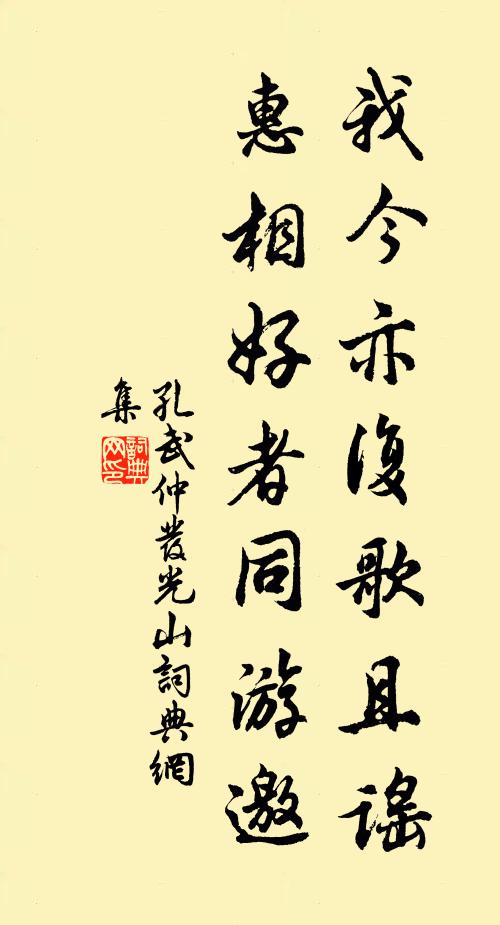 我今亦復歌且謠
惠相好者同游邀
孔武仲發光山詞典網
集
詞典網印